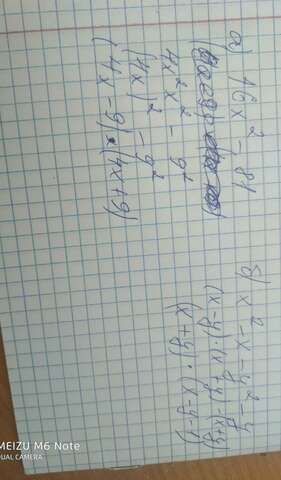 а) 16x² - 81
4²x² - 9²
(4x)² - 9²
(4x - 9)(4x + 9)
б) x² - x - y² - y
(x-y)·(x+y)-(x+y)
(x+y)·(x-y-1)
MEIZU M6 Note
DUAL CAMERA